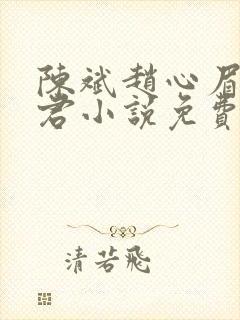 陳斌趙心眉
君小說免費
清若飛